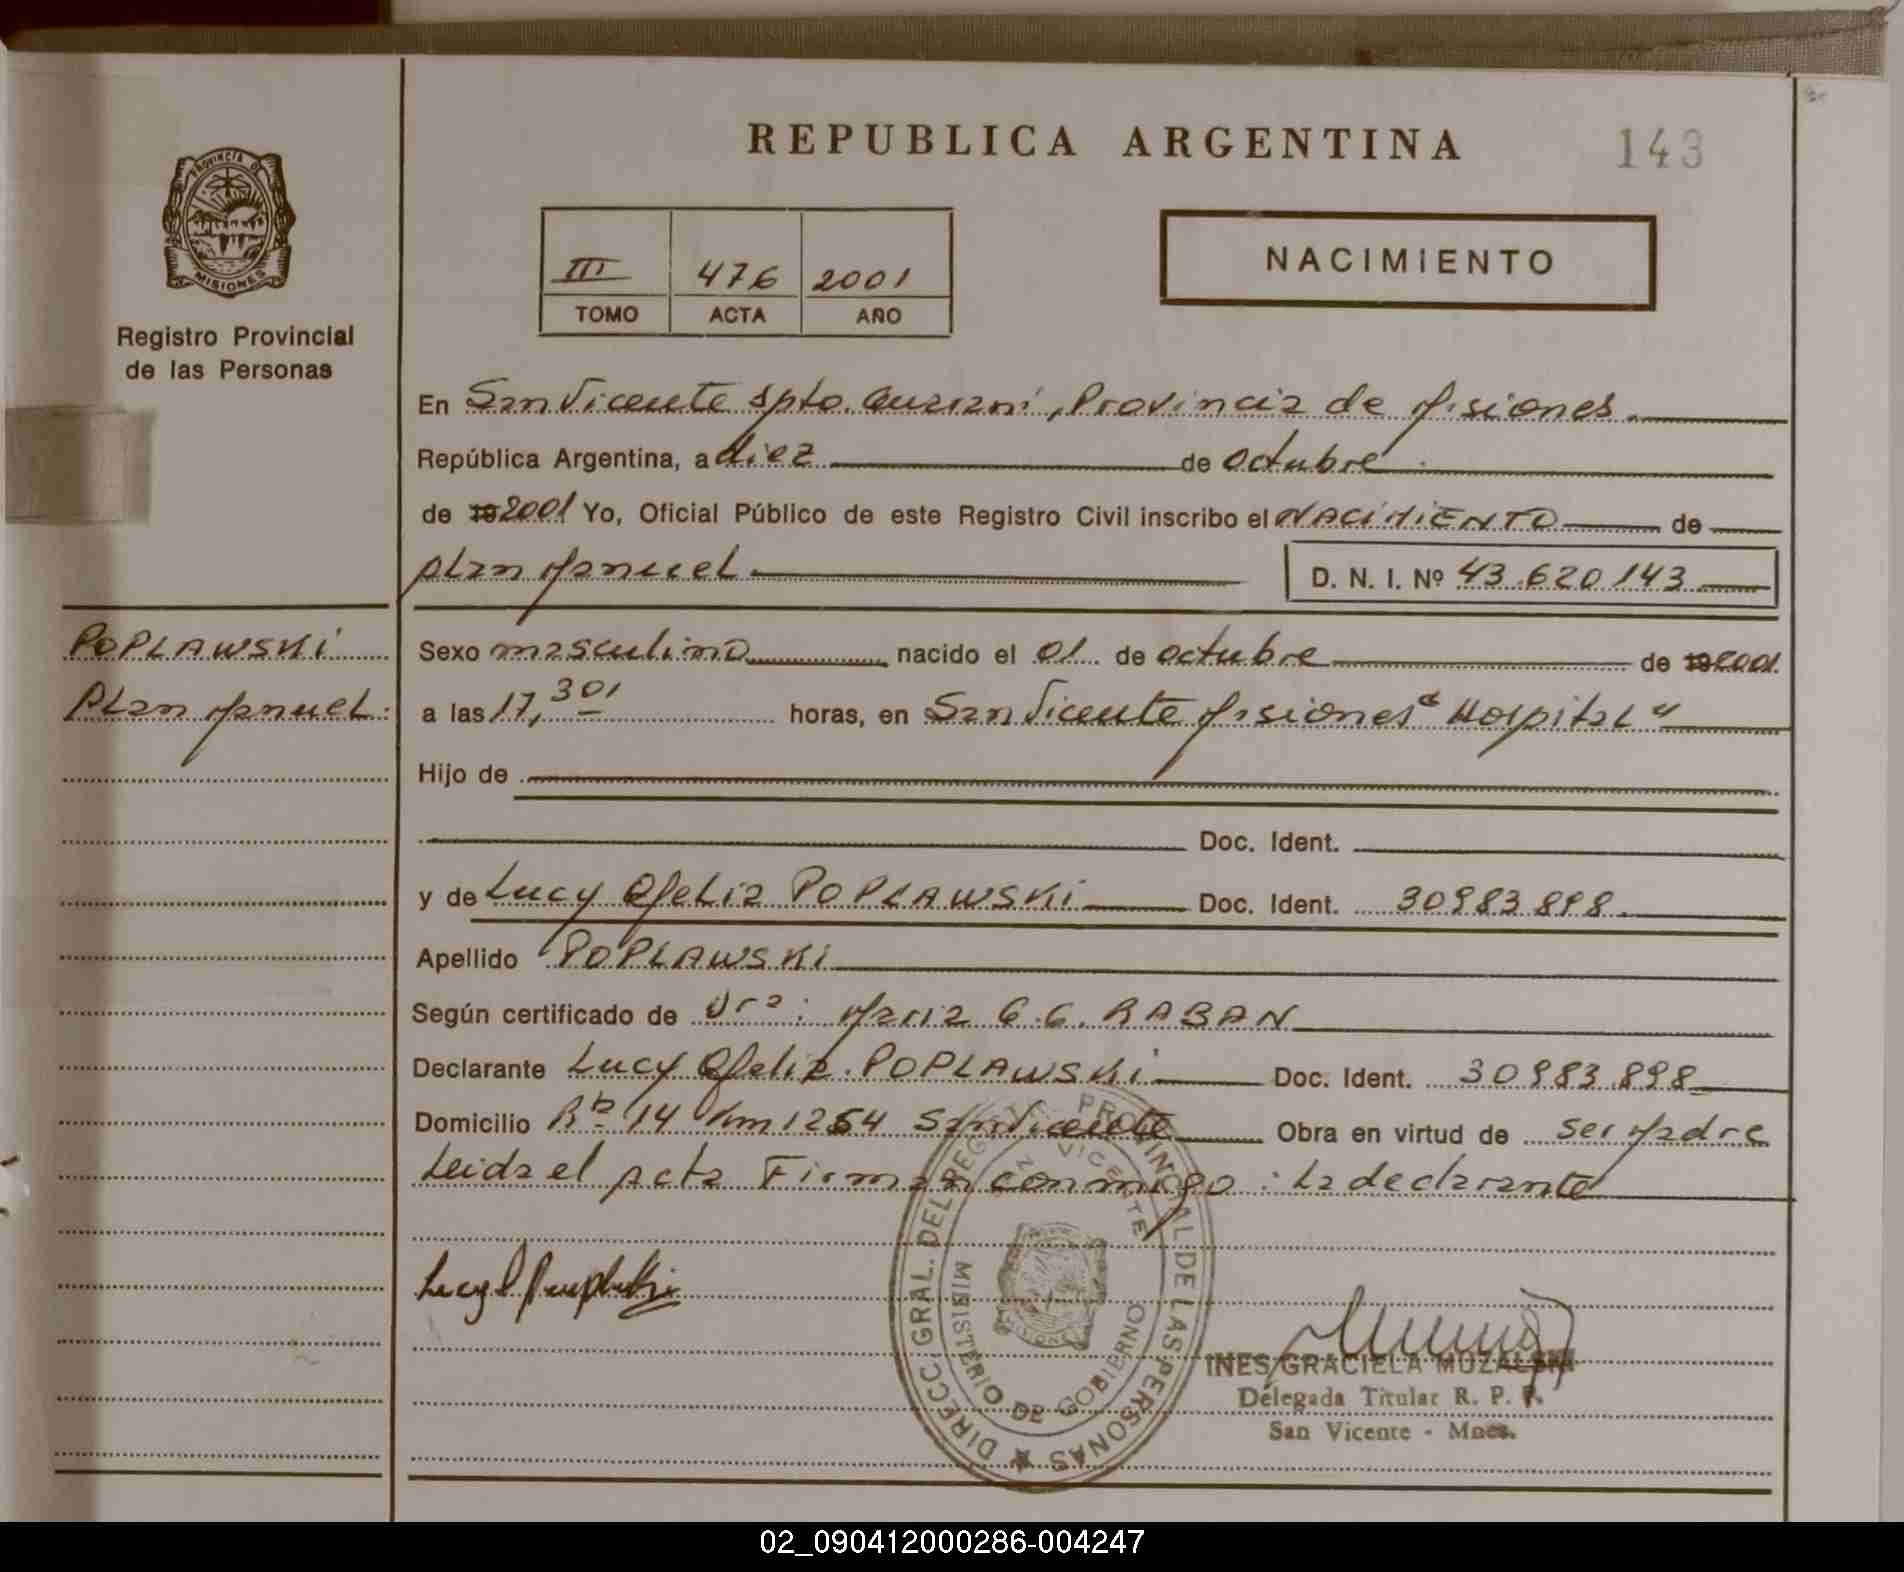 REPUBLICA ARGENTINA
143
PROVINCIA DE
MISIONES
Registro Provincial
de las Personas
III 476 2001
TOMO ACTA AÑO
NACIMIENTO
En San Vicente Dpto. Guarani, Provincia de Misiones.
República Argentina, a diez de octubre
de 19 2001 Yo, Oficial Público de este Registro Civil inscribo el NACIMIENTO de
Alan Manuel
D. N. I. Nº 43.620.143
POPLAWSKI
Alan Manuel.
Sexo masculino nacido el 01 de octubre de 19 2001.
a las 17,30 horas, en San Vicente Misiones "Hospital"
Hijo de
Doc. Ident.
y de Lucy Ofelia POPLAWSKI Doc. Ident. 30983898.
Apellido POPLAWSKI
Según certificado de Dra: Maria G.G. RABAN
Declarante Lucy Ofelia POPLAWSKI Doc. Ident. 30983898
Domicilio Rta 14 Km 1254 San Vicente Obra en virtud de ser Madre
Leida el Acta Firman conmigo: la declarante
DIRECC. GRAL. DEL REGISTRO PROVINCIAL DE LAS PERSONAS
SAN VICENTE
MINISTERIO DE GOBIERNO
MISIONES
INES GRACIELA
Delegada Titular R. P. P.
San Vicente - Mnes.
02_090412000286-004247